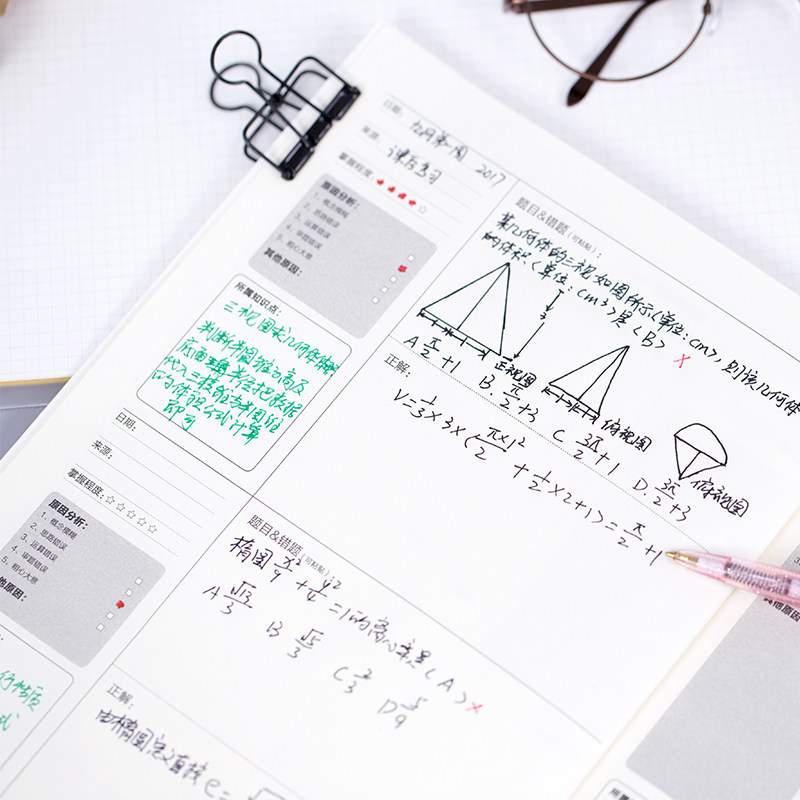 日期: 九月第一周 2017
来源: 课后练习
掌握程度:
原因分析:
1、概念模糊
2、思路错误
3、运算错误
4、审题错误
5、粗心大意
其他原因:
所属知识点:
三视图求几何体体积
判断半圆锥的高及
底面半径把数据
代入三棱锥与半圆锥
的体积公式计算
即可
题目&错题(可粘贴):
某几何体的三视如图所示(单位:cm),则该几何体
的体积(单位:cm³)是(B) ×
3
正视图
俯视图
A π/2+1
B. π/2+3
C 3π/2+1
D. 3π/2+3
正解:
V=1/3×3×(π×1²/2+1/2×2+1)=π/2+1
日期:
来源:
掌握程度:
原因分析:
1、概念模糊
2、思路错误
3、运算错误
4、审题错误
5、粗心大意
其他原因:
题目&错题(可粘贴):
椭圆x²/9+y²/4=1的离心率是(A) ×
A √13/3
B √5/3
C 2/3
D 5/9
正解:
由椭圆定义直接e=√
行性质
式
3、
4、
5、
其他原因
所属知识点